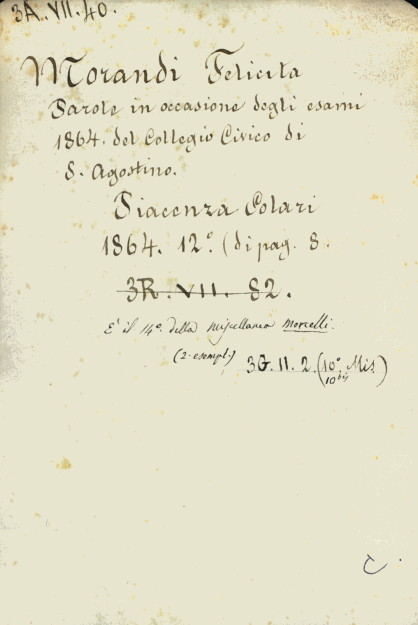 3A.VII.40.
Morandi Felicita
Parole in occasione degli esami
1864. del Collegio Civico di
S. Agostino.
Piacenza Solari
1864. 12° (di pag. 8.
3R.VII. 82.
E' il 14° della miscellanea Morelli.
(2 esempl.) 3G.11.2.(10° Mis)
10 bis
C.